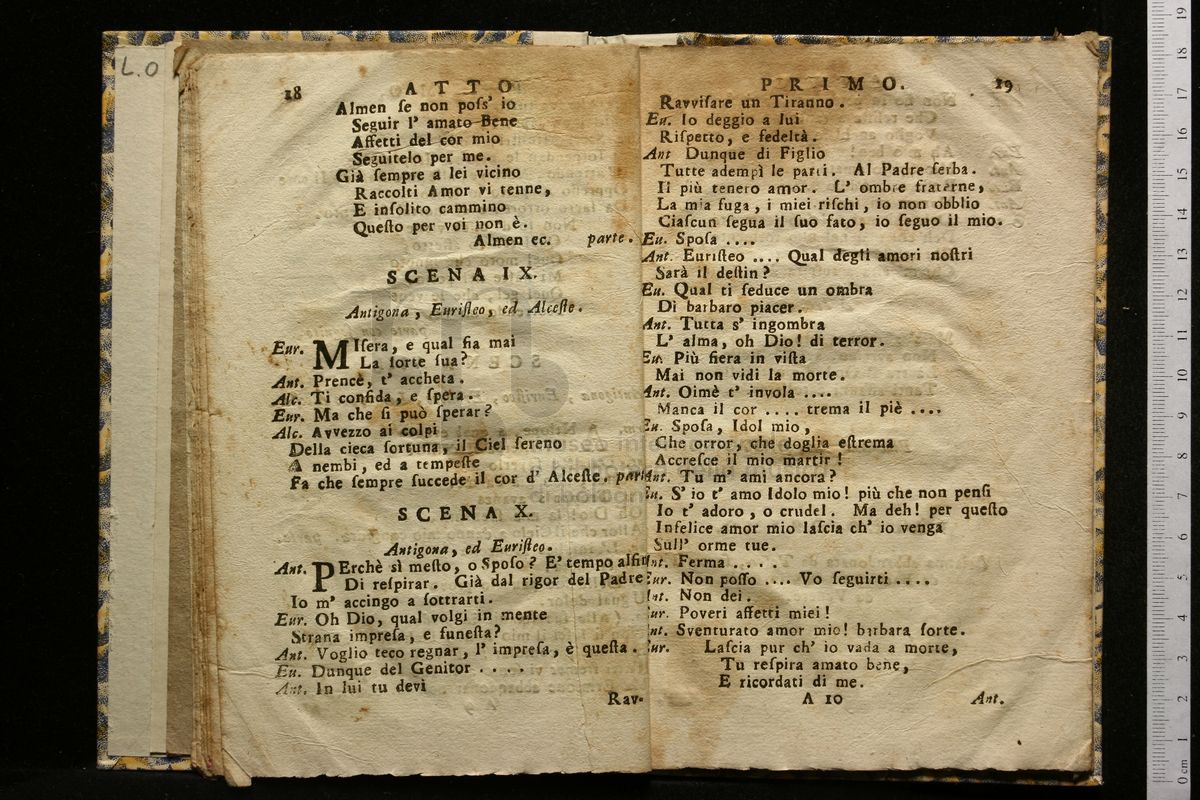 L.O
18 ATTO
Almen ſe non poſs' io
Seguir l' amato Bene
Affetti del cor mio
Seguitelo per me.
Già ſempre a lei vicino
Raccolti Amor vi tenne,
E inſolito cammino
Queſto per voi non è.
Almen ec. parte.
SCENA IX.
Antigona, Euriſteo, ed Alceſte.
Eur. MIſera, e qual ſia mai
La ſorte ſua?
Ant. Prence, t' accheta.
Alc. Ti confida, e ſpera.
Eur. Ma che ſi può ſperar?
Alc. Avvezzo ai colpi
Della cieca fortuna, il Ciel ſereno
A nembi, ed a tempeſte
Fa che ſempre ſuccede il cor d' Alceſte. part
SCENA X.
Antigona, ed Euriſteo.
Ant. PErchè sì meſto, o Spoſo? E' tempo alfin
Di reſpirar. Già dal rigor del Padre
Io m' accingo a ſottrarti.
Eur. Oh Dio, qual volgi in mente
Strana impreſa, e funeſta?
Ant. Voglio teco regnar, l' impreſa, è queſta.
Eu. Dunque del Genitor . . . .
Ant. In lui tu devi
Rav-
PRIMO. 19
Ravviſare un Tiranno.
Eu. Io deggio a lui
Riſpetto, e fedeltà.
Ant Dunque di Figlio
Tutte adempì le parti. Al Padre ſerba.
Il più tenero amor. L' ombre fraterne,
La mia fuga, i miei riſchi, io non obblio
Ciaſcun ſegua il ſuo fato, io ſeguo il mio.
Eu. Spoſa ....
Ant. Euriſteo .... Qual degli amori noſtri
Sarà il deſtin?
Eu. Qual ti ſeduce un ombra
Di barbaro piacer.
Ant. Tutta s' ingombra
L' alma, oh Dio! di terror.
Eu. Più fiera in viſta
Mai non vidi la morte.
Ant. Oimè t' invola ....
Manca il cor .... trema il piè ....
Eu. Spoſa, Idol mio,
Che orror, che doglia eſtrema
Accreſce il mio martir!
Ant. Tu m' ami ancora?
Eu. S' io t' amo Idolo mio! più che non penſi
Io t' adoro, o crudel. Ma deh! per queſto
Infelice amor mio laſcia ch' io venga
Sull' orme tue.
Ant. Ferma . . . . .
Eur. Non poſſo .... Vo ſeguirti ....
Ant. Non dei.
Eur. Poveri affetti miei!
Ant. Sventurato amor mio! barbara ſorte.
Eur. Laſcia pur ch' io vada a morte,
Tu reſpira amato bene,
E ricordati di me.
A 10 Ant.